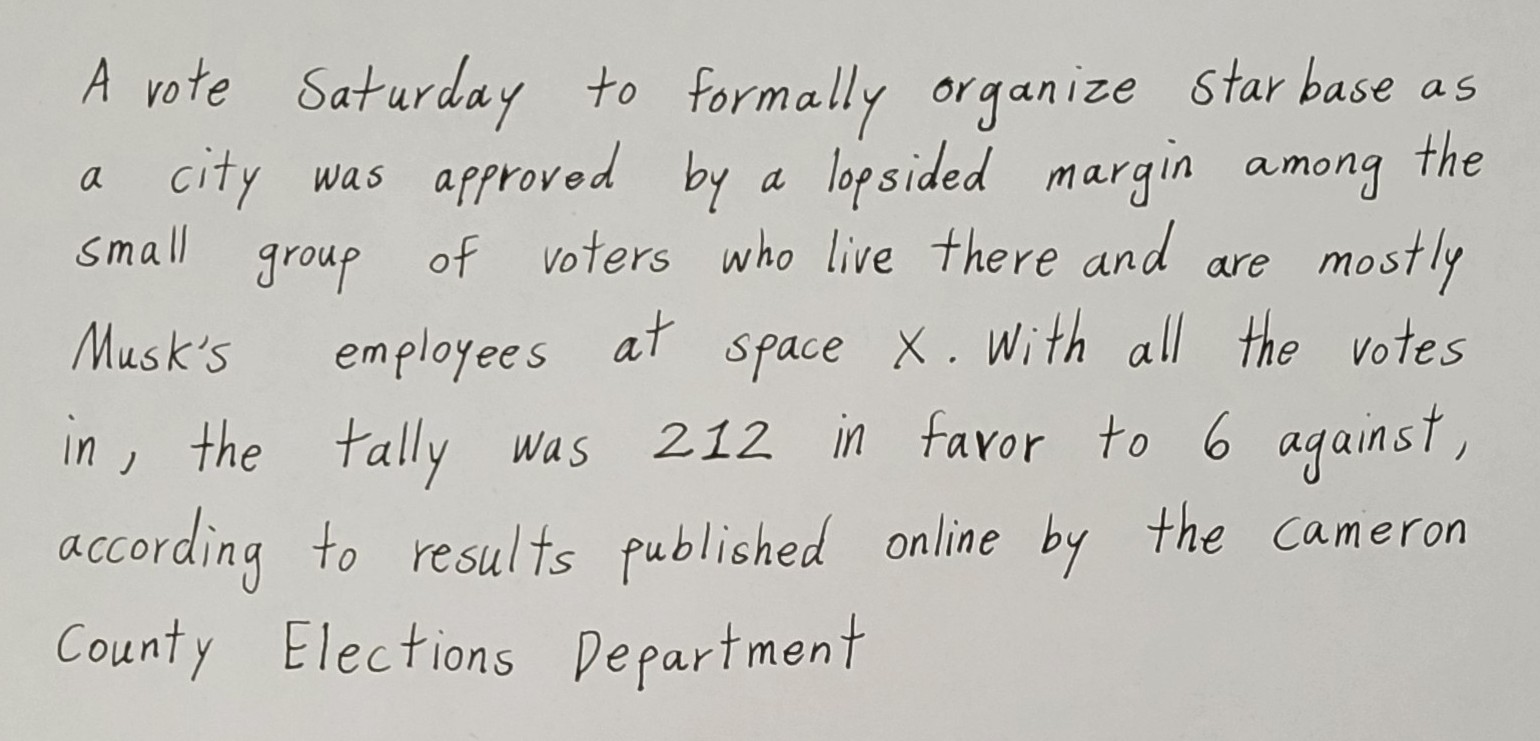 A vote Saturday to formally organize Starbase as
a city was approved by a lopsided margin among the
small group of voters who live there and are mostly
Musk's employees at space X. With all the votes
in, the tally was 212 in favor to 6 against,
according to results published online by the Cameron
County Elections Department